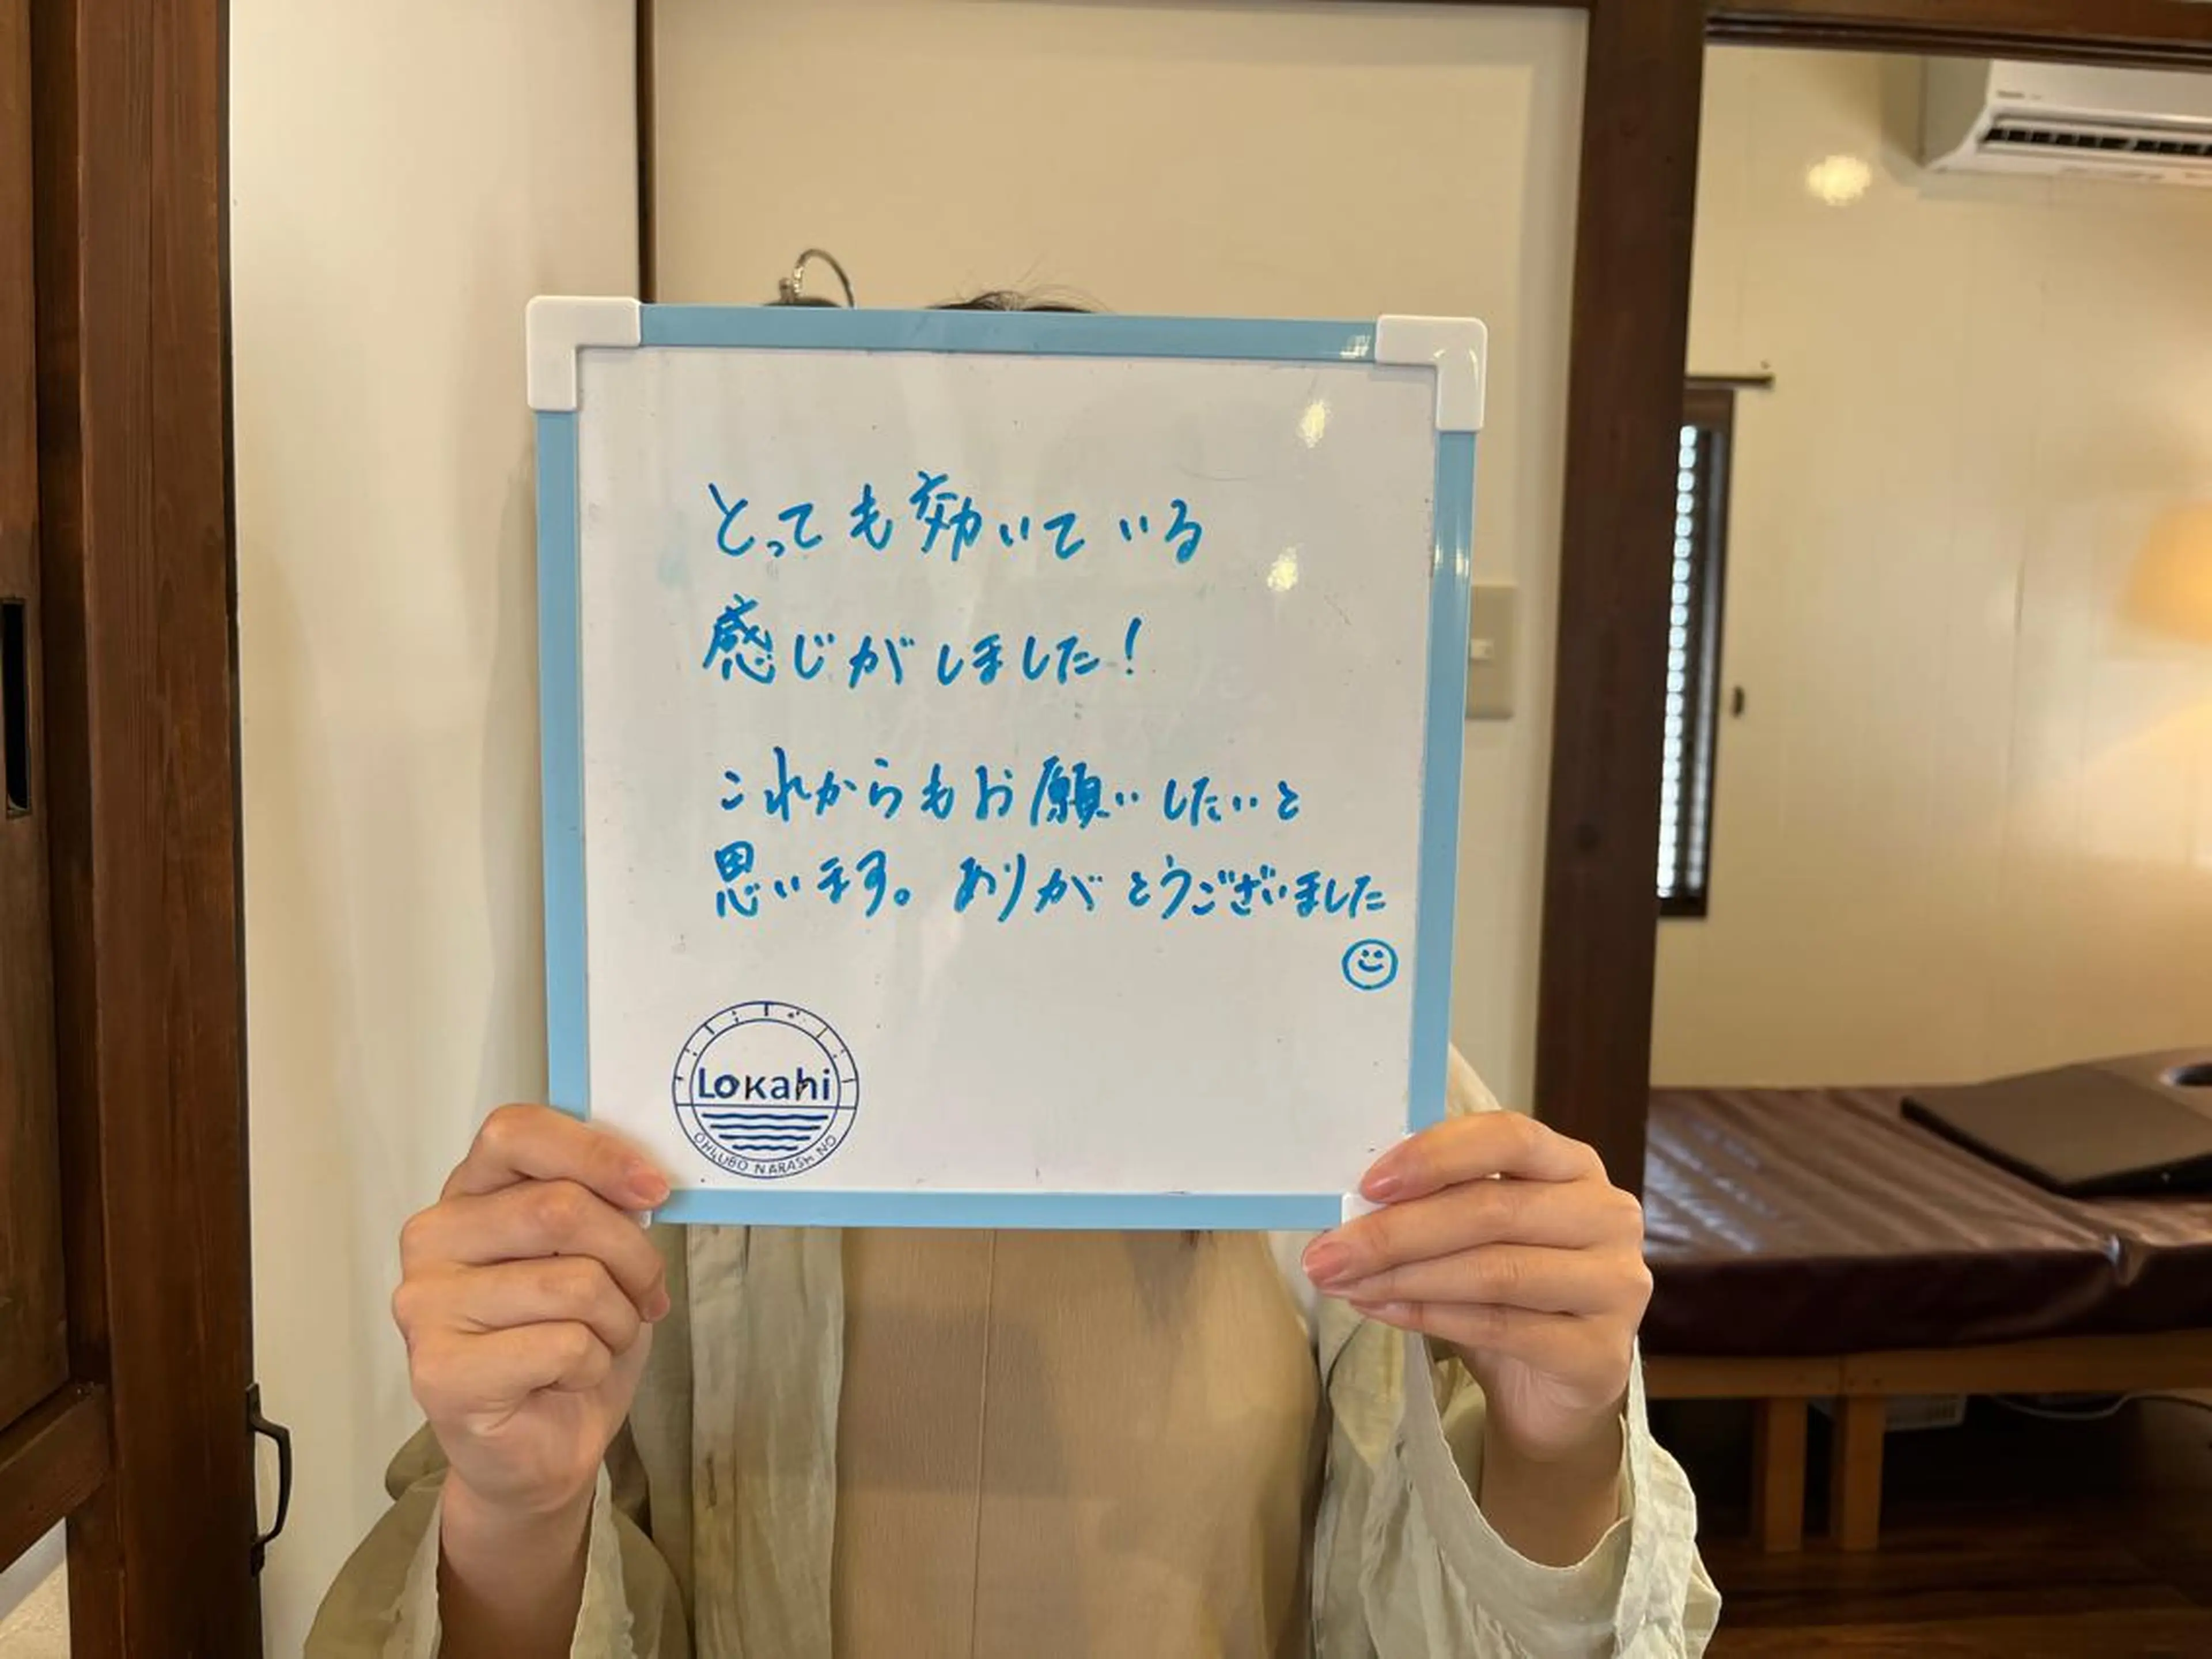 とっても効いている
感じがしました！
これからもお願いしたいと
思います。ありがとうございました
Lokahi